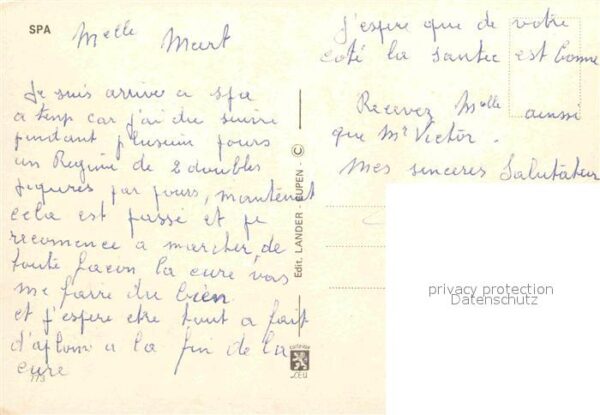 SPA
Melle Mart
Je suis arrivé a spa
a temp car j'ai du suivre
pendant plusieur jours
un Regime de 2 doubles
piqures par jours, maintenat
cela est passé et je
recomence a marcher, de
toute façon la cure vas
me faire du bien
et j'espere etre tout a fait
d'aplom a la fin de la
cure
113
Edit. LANDER - EUPEN - ©
J'espere que de votre
coté la santee est bonne
Recevez Melle aussi
que Mr Victor.
Mes senceres Salutateur
privacy protection
Datenschutz